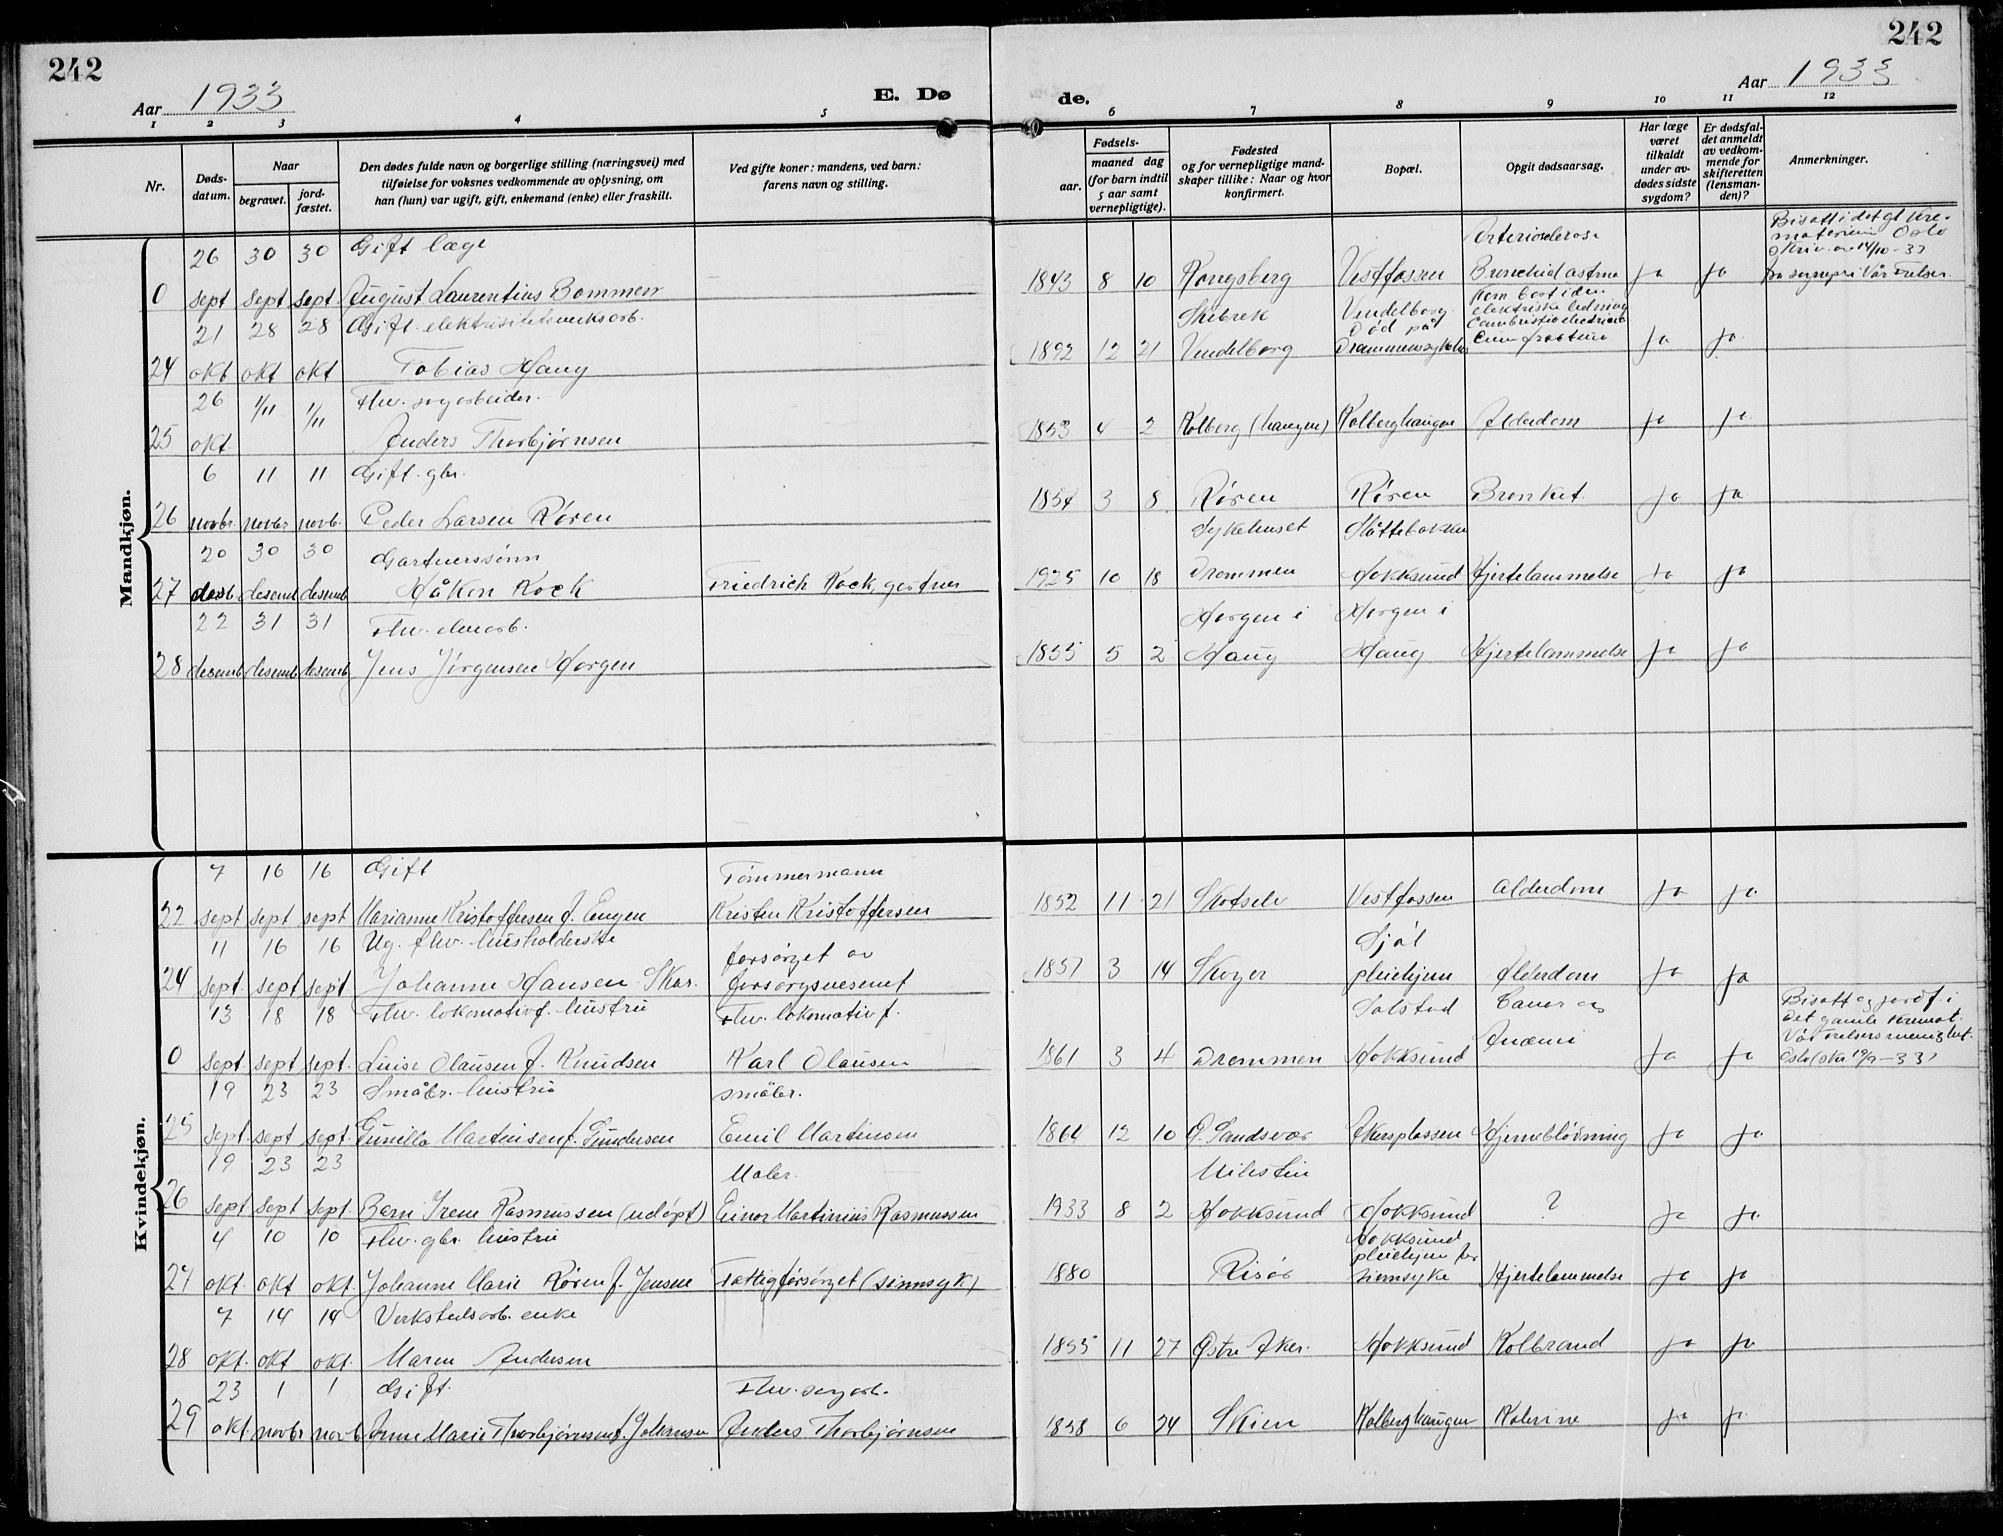 242
242
Aar 1933
E. Dø
de.
Aar 1933
1 2 3 4 5 6 7 8 9 10 11 12
Nr.
Døds-
datum.
Naar
begravet.
jord-
fæstet.
Den dødes fulde navn og borgerlige stilling (næringsvei) med
tilføielse for voksnes vedkommende av oplysning, om
han (hun) var ugift, gift, enkemand (enke) eller fraskilt.
Ved gifte koner: mandens, ved barn:
farens navn og stilling.
Fødsels-
aar.
maaned dag
(for barn indtil
5 aar samt
vernepligtige).
Fødested
og for vernepligtige mand-
skaper tillike: Naar og hvor
konfirmert.
Bopæl.
Opgit dødsaarsag.
Har læge
været
tilkaldt
under av-
dødes sidste
sygdom?
Er dødsfal-
det anmeldt
av vedkom-
mende for
skifteretten
(lensman-
den)?
Anmerkninger.
Mandkjøn.
26 30 30 Gift læge Arterioslerose Bisatt i det gl. Kre-
matorium Oslo
0 sept sept sept. August Laurentius Bommen 1843 8 10 Kongsberg Vestfossen Bronchial astma ja ja
21 28 28 Gift. elektrisitetsverksarb. Skibrek Vendelborg Kom bort i den
elektriske ledning
Død på
24 okt okt okt Tobias Haug 1892 12 21 Vendelborg Drammens sykehus ja ja
26 1/11 1/11 Fhv. sagarbeider.
25 okt. Anders Thorbjørnsen 1853 4 2 Kolberg (haugen) Kolberghaugen Alderdom ja ja
6 11 11 Gift. gbr.
26 novbr. novbr novb. Peder Larsen Røren 1854 3 8 Røren Røren Bronkit. ja ja
20 30 30 Gartnerssønn Sykehuset Slåttebakken
27 desb. desemb desemb Håkon Kock Friedrich Kock, gartner 1925 10 18 Drammen Hokksund Hjertelammelse ja ja
22 31 31 Fhv. elvearb. Horgen i Horgen i
28 desemb desemb desemb Jens Jørgensen Horgen 1855 5 2 Haug Haug Hjertelammelse ja ja
Kvindekjøn.
7 16 16 Gift Tømmermann
22 sept sept sept Marianne Kristoffersen f. Engen Kristen Kristoffersen 1852 11 21 Skotselv Vestfossen Alderdom ja ja
11 16 16 Ug. fhv. husholderske forsørget av Sjøl
24 sept. sept sept Johanne Hansen Skar. forsorgsvesenet 1857 3 14 Skoger pleiehjem Alderdom ja ja
13 18 18 Fhv. lokomotivf. hustru Fhv. lokomotivf. Solstad Cancer og Bisatt og jordf. i
det gamle Kremat.
0 sept. sept. sept. Luise Olausen f. Knudsen Karl Olausen 1861 3 4 Drammen Hokksund Anæmi ja ja Vår Frelsers menighet.
Oslo
19 23 23 Småbr. hustru småbr.
25 sept. sept sept. Gunilla Martinsen f. Gundersen Emil Martinsen 1864 12 10 Ø. Sandsvær Åkersplassen Hjerneblødning ja ja
19 23 23 Maler. Milestein
26 sept sept sept. Barn Irene Rasmussen (udøpt) Einar Martinius Rasmussen 1933 8 2 Hokksund Hokksund ? ja ja
4 10 10 Fhv. gbr. hustru Hokksund
pleiehjem for
27 okt. okt okt. Johanne Marie Røren f. Jensen Fattigforsørget (sinnsyk) 1880 Risør sinnsyke Hjertelammelse ja ja
7 14 14 Verkstedsarb. enke
28 okt. okt okt. Maren Andersen 1855 11 27 Østre Aker. Hokksund Kolbrand ja ja
23 1 1 Gift. Fhv. sagarb.
29 okt. novbr novb Anne Marie Thorbjørnsen f. Johansen Anders Thorbjørnsen 1858 6 24 Skien Kolberghaugen ja ja